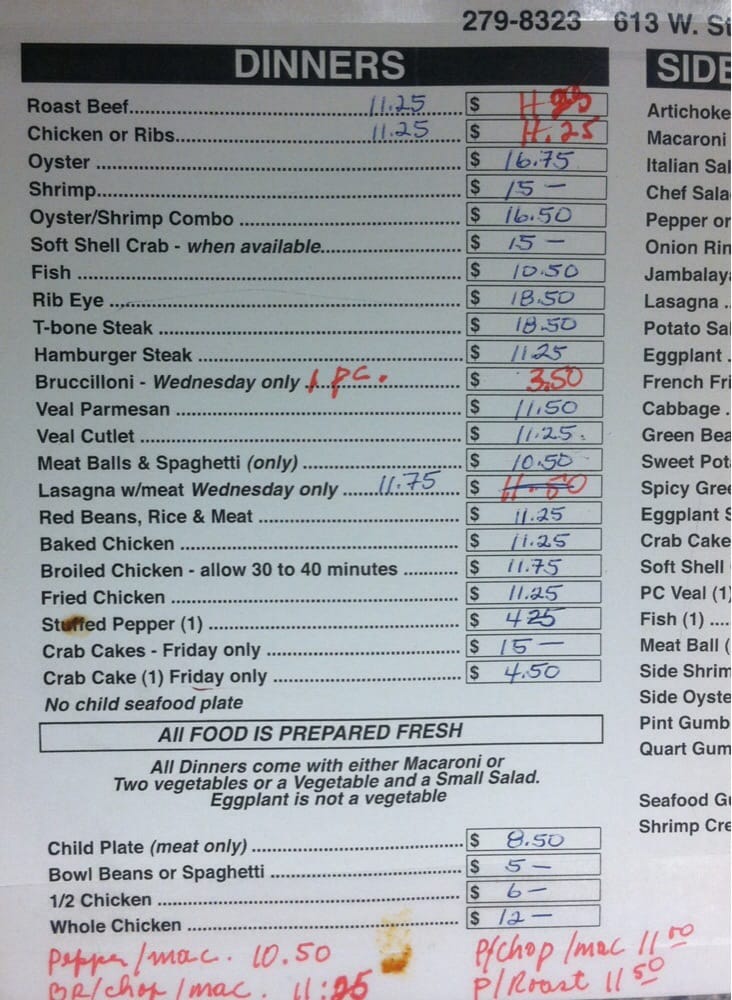 279-8323 613 W. St
DINNERS
Roast Beef 11.25 $
Chicken or Ribs 11.25 $ 11.25
Oyster $ 16.75
Shrimp $ 15 —
Oyster/Shrimp Combo $ 16.50
Soft Shell Crab - when available $ 15 —
Fish $ 10.50
Rib Eye $ 18.50
T-bone Steak $ 18.50
Hamburger Steak $ 11.25
Bruccilloni - Wednesday only 1 pc. $ 3.50
Veal Parmesan $ 11.50
Veal Cutlet $ 11.25
Meat Balls & Spaghetti (only) $ 10.50
Lasagna w/meat Wednesday only 11.75 $ 11.50
Red Beans, Rice & Meat $ 11.25
Baked Chicken $ 11.25
Broiled Chicken - allow 30 to 40 minutes $ 11.75
Fried Chicken $ 11.25
Stuffed Pepper (1) $ 4.25
Crab Cakes - Friday only $ 15 —
Crab Cake (1) Friday only $ 4.50
No child seafood plate
All FOOD IS PREPARED FRESH
All Dinners come with either Macaroni or
Two vegetables or a Vegetable and a Small Salad.
Eggplant is not a vegetable
Child Plate (meat only) $ 8.50
Bowl Beans or Spaghetti $ 5 —
1/2 Chicken $ 6 —
Whole Chicken $ 12 —
Pepper/mac. 10.50
BR/chop/mac. 11:25
P/Chop/mac 11 00
P/Roast 11 50
SIDE
Artichoke
Macaroni
Italian Sal
Chef Sala
Pepper or
Onion Rin
Jambalaya
Lasagna ..
Potato Sal
Eggplant .
French Fri
Cabbage .
Green Bea
Sweet Pot
Spicy Gree
Eggplant S
Crab Cake
Soft Shell
PC Veal (1)
Fish (1) ....
Meat Ball (
Side Shrim
Side Oyste
Pint Gumb
Quart Gum
Seafood Gu
Shrimp Cre